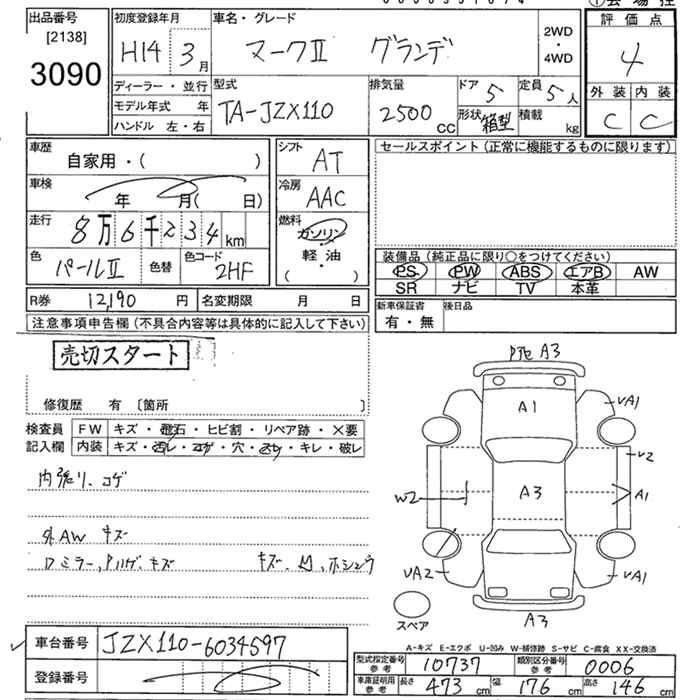 出品番号 [2138] 3090
初度登録年月 H14年 3月
車名・グレード マークⅡ グランデ
2WD・4WD
評価点 4
外装 C 内装 C
ディーラー・並行
モデル年式 年
ハンドル 左・右
型式 TA-JZX110
排気量 2500 CC
ドア 5
形状 箱型
定員 5人
積載 kg
車歴 自家用・( )
車検 年 月( 日)
走行 8万6千234km
色 パールⅡ 色替
色コード 2HF
シフト AT
冷房 AAC
燃料 ガソリン・軽油 ( )
セールスポイント (正常に機能するものに限ります)
装備品 (純正品に限り○をつけてください)
PS PW ABS エアB AW
SR ナビ TV 本革
R券 12,190 円
名変期限 月 日
新車保証書 有・無
後日品
注意事項申告欄 (不具合内容等は具体的に記入して下さい)
売切スタート
修復歴 有 〔箇所 〕
検査員記入欄
FW キズ・飛石・ヒビ割・リペア跡・×要
内装 キズ・汚レ・コゲ・穴・スレ・キレ・破レ
内張り、コゲ
外AW キズ
ロミラー、Aハゲ、キズ
キズ、凹、ホシュウ
P他 A3
A1
VA1
V2
W2
A3
A1
VA2
VA1
A3
スペア
A-キズ E-エクボ U-凹み W-補修跡 S-サビ C-腐食 XX-交換済
車台番号 JZX110-6034597
登録番号
型式指定番号 参考 10737
類別区分番号 参考 0006
車庫証明用 参考 長さ 473cm 幅 176cm 高さ 146cm